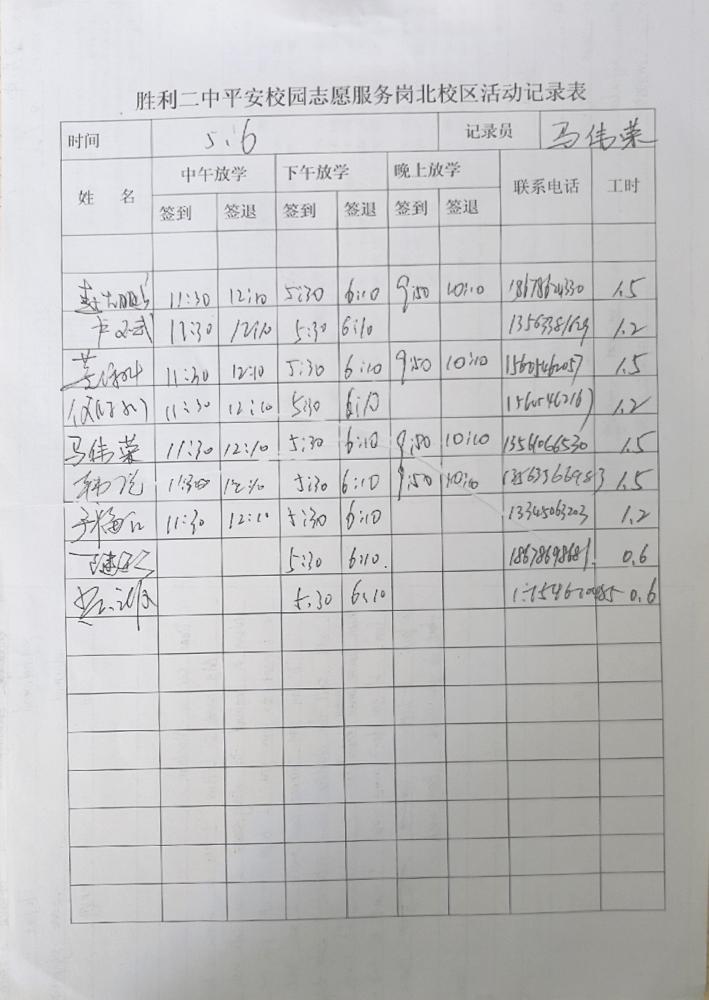 胜利二中平安校园志愿服务岗北校区活动记录表
时间 5.6 记录员 马伟荣
姓 名 中午放学 下午放学 晚上放学 联系电话 工时
签到 签退 签到 签退 签到 签退
11:30 12:10 5:30 6:10 9:50 10:10 18678624330 1.5
11:30 12:10 5:30 6:10 1.2
11:30 12:10 5:30 6:10 9:50 10:10 15605462057 1.5
11:30 12:10 5:30 6:10 1.2
马伟荣 11:30 12:10 5:30 6:10 9:50 10:10 13561066530 1.5
11:30 12:10 5:30 6:10 9:50 10:10 13563566983 1.5
11:30 12:10 5:30 6:10 13345063203 1.2
5:30 6:10. 18678698681. 0.6
5:30 6:10 0.6